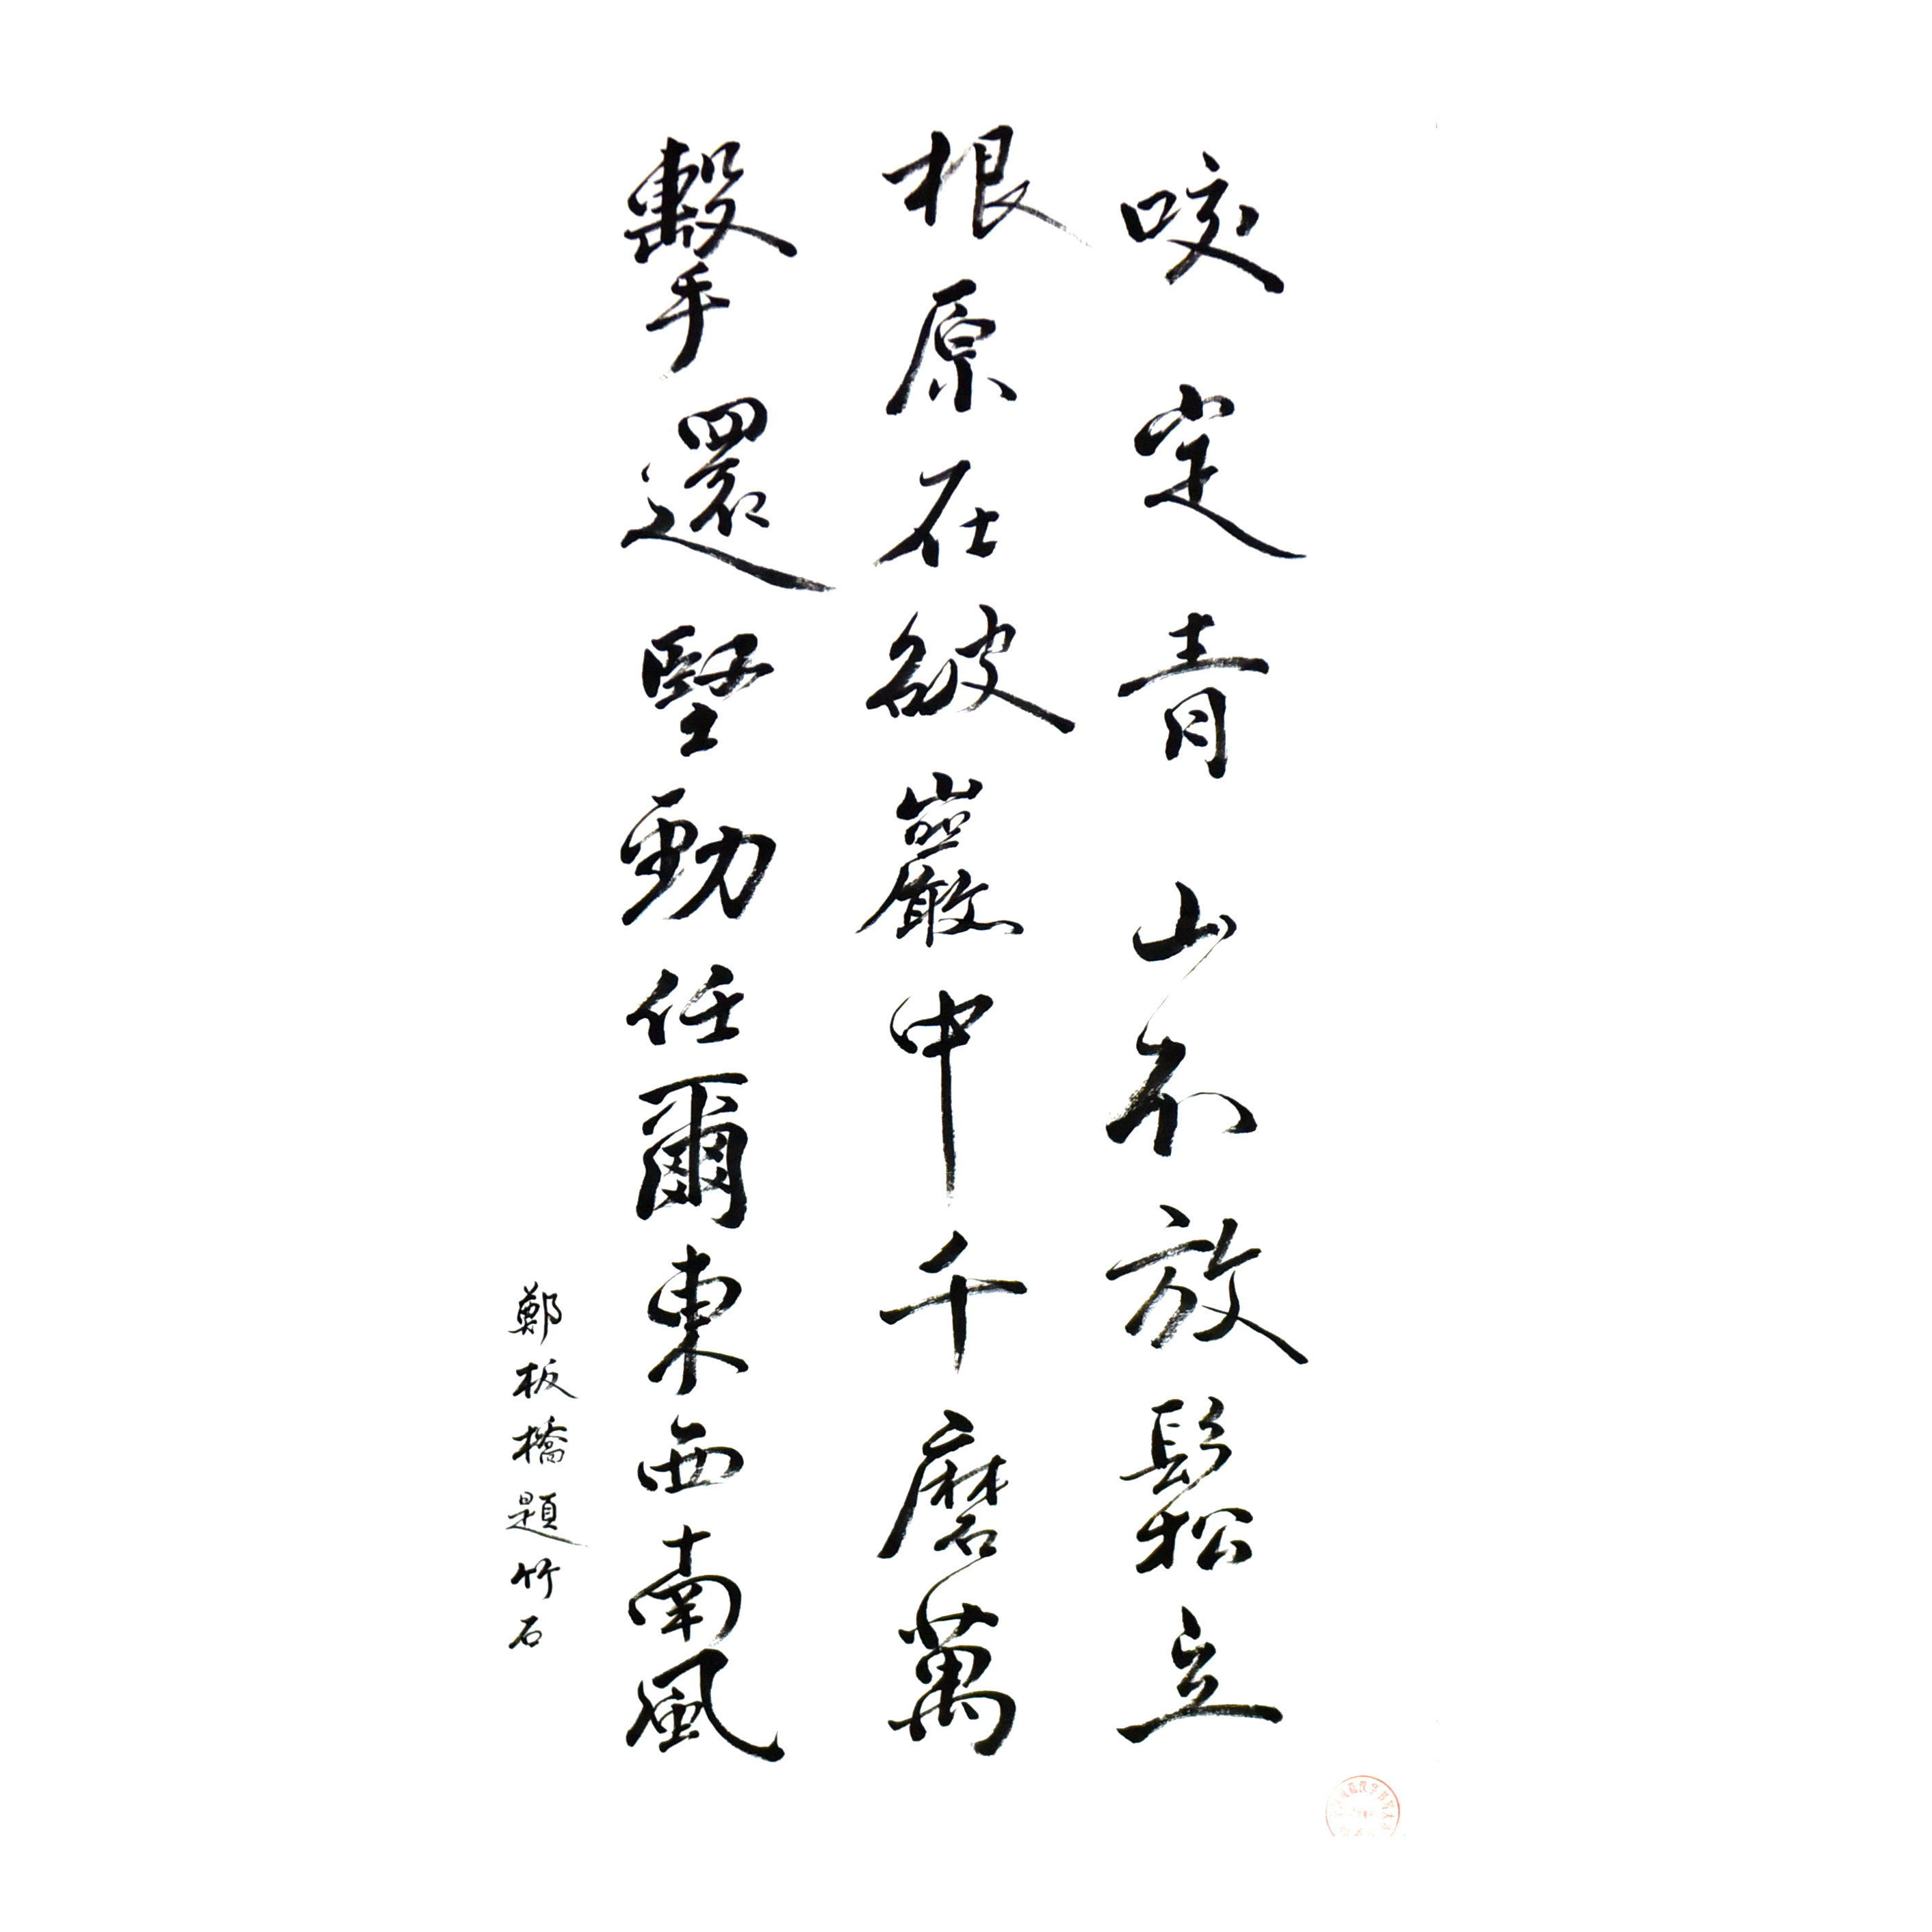 咬定青山不放鬆立
根原在破巖中千磨萬
擊還堅勁任爾東西南風
鄭板橋題竹石